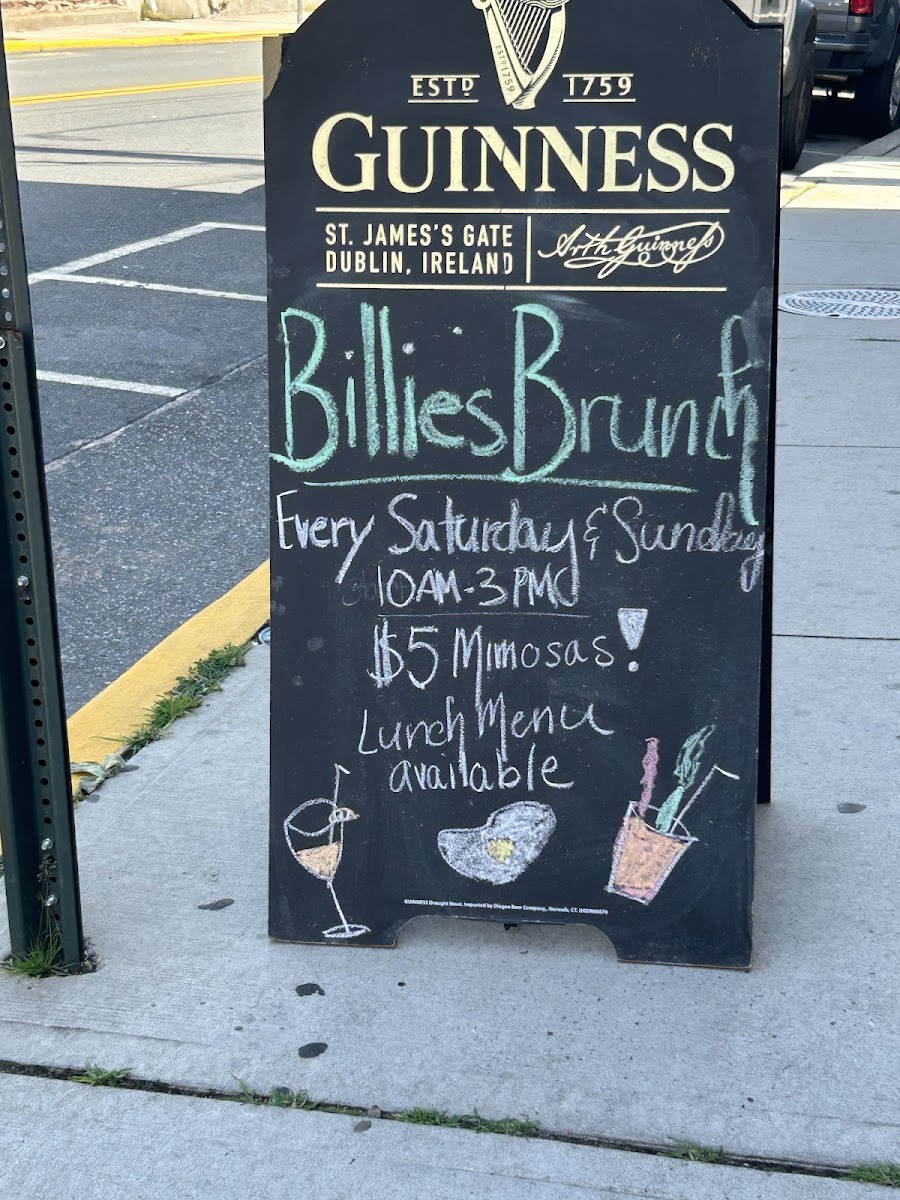 ESTD 1759
GUINNESS
ST. JAMES'S GATE
DUBLIN, IRELAND
Arth Guinness
Billies Brunch
Every Saturday & Sunday
10AM-3PM
$5 Mimosas!
Lunch Menu
available
GUINNESS Draught Stout. Imported by Diageo Beer Company, Norwalk, CT.